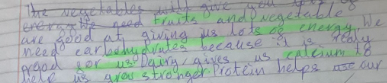 The vegetables give you
energy need fruits and vegetables
are good at giving us lots of energy. We
need carbohydrates because is really
good for us Dairy gives us calcium to
help us grow stronger Protein helps use our